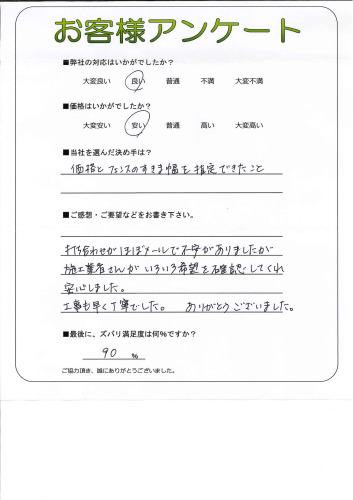 お客様アンケート
■弊社の対応はいかがでしたか？
大変良い 良い 普通 不満 大変不満
■価格はいかがでしたか？
大変安い 安い 普通 高い 大変高い
■当社を選んだ決め手は？
価格と フェンスのすきま幅を指定できたこと
■ご感想・ご要望などをお書き下さい。
打ち合わせがほぼメールで不安がありましたが
施工業者さんがいろいろ希望を確認してくれ
安心しました。
工事も早く丁寧でした。 ありがとうございました。
■最後に、ズバリ満足度は何％ですか？
90 %
ご協力頂き、誠にありがとうございました。